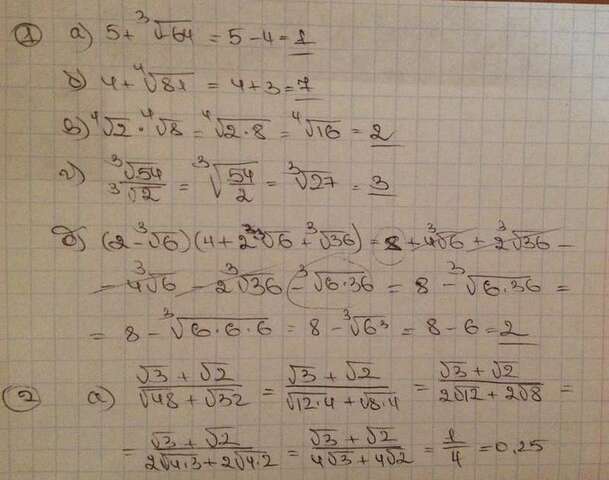 1 а) 5+∛64 = 5-4 = 1
б) 4+∜81 = 4+3 = 7
в) ∜2·∜8 = ∜2·8 = ∜16 = 2
г) ∛54/∛2 = ∛(54/2) = ∛27 = 3
д) (2-∛6)(4+2∛6+∛36) = 8+4∛6+2∛36-
-4∛6-2∛36-∛6·36 = 8-∛6·36 =
= 8-∛6·6·6 = 8-∛6³ = 8-6 = 2
2 а) (√3+√2)/(√48+√32) = (√3+√2)/(√12·4+√8·4) = (√3+√2)/(2√12+2√8) =
= (√3+√2)/(2√4·3+2√4·2) = (√3+√2)/(4√3+4√2) = 1/4 = 0,25